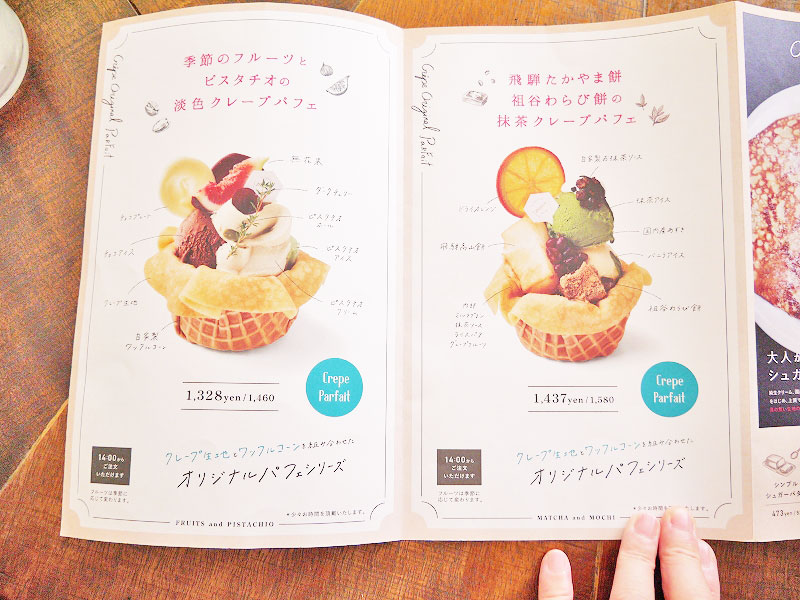 Crêpe Original Parfait
季節のフルーツと
ピスタチオの
淡色クレープパフェ
無花果
ダークチェリー
チョコアイス
ピスタチオ
アイス
ピスタチオ
クリーム
クレープ生地
自家製
ワッフルコーン
1,328yen/1,460
Crepe
Parfait
14:00から
ご注文
いただけます
フルーツは季節に
応じて変わります。
クレープ生地とワッフルコーンを組み合わせた
オリジナルパフェシリーズ
*少々お時間を頂戴いたします。
FRUITS and PISTACHIO
Crêpe Original Parfait
飛騨たかやま餅
祖谷わらび餅の
抹茶クレープパフェ
自家製お抹茶ソース
ドライオレンジ
抹茶アイス
国内産あずき
飛騨高山餅
バニラアイス
祖谷わらび餅
抹茶ソース
グレープフルーツ
1,437yen/1,580
Crepe
Parfait
14:00から
ご注文
いただけます
フルーツは季節に
応じて変わります。
クレープ生地とワッフルコーンを組み合わせた
オリジナルパフェシリーズ
MATCHA and MOCHI
大人が
シュガ
シンプル
シュガーバタ
473yen/5